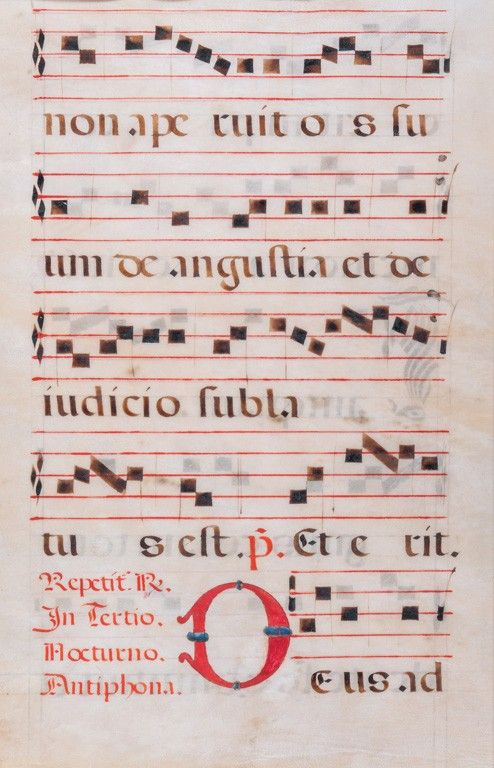 non ape ruit o s su
um de angustia et de
iudicio subla
tu s est. p. Et e rit.
Repetit. R.
In Tertio.
Nocturno.
Antiphona.
Deus ad